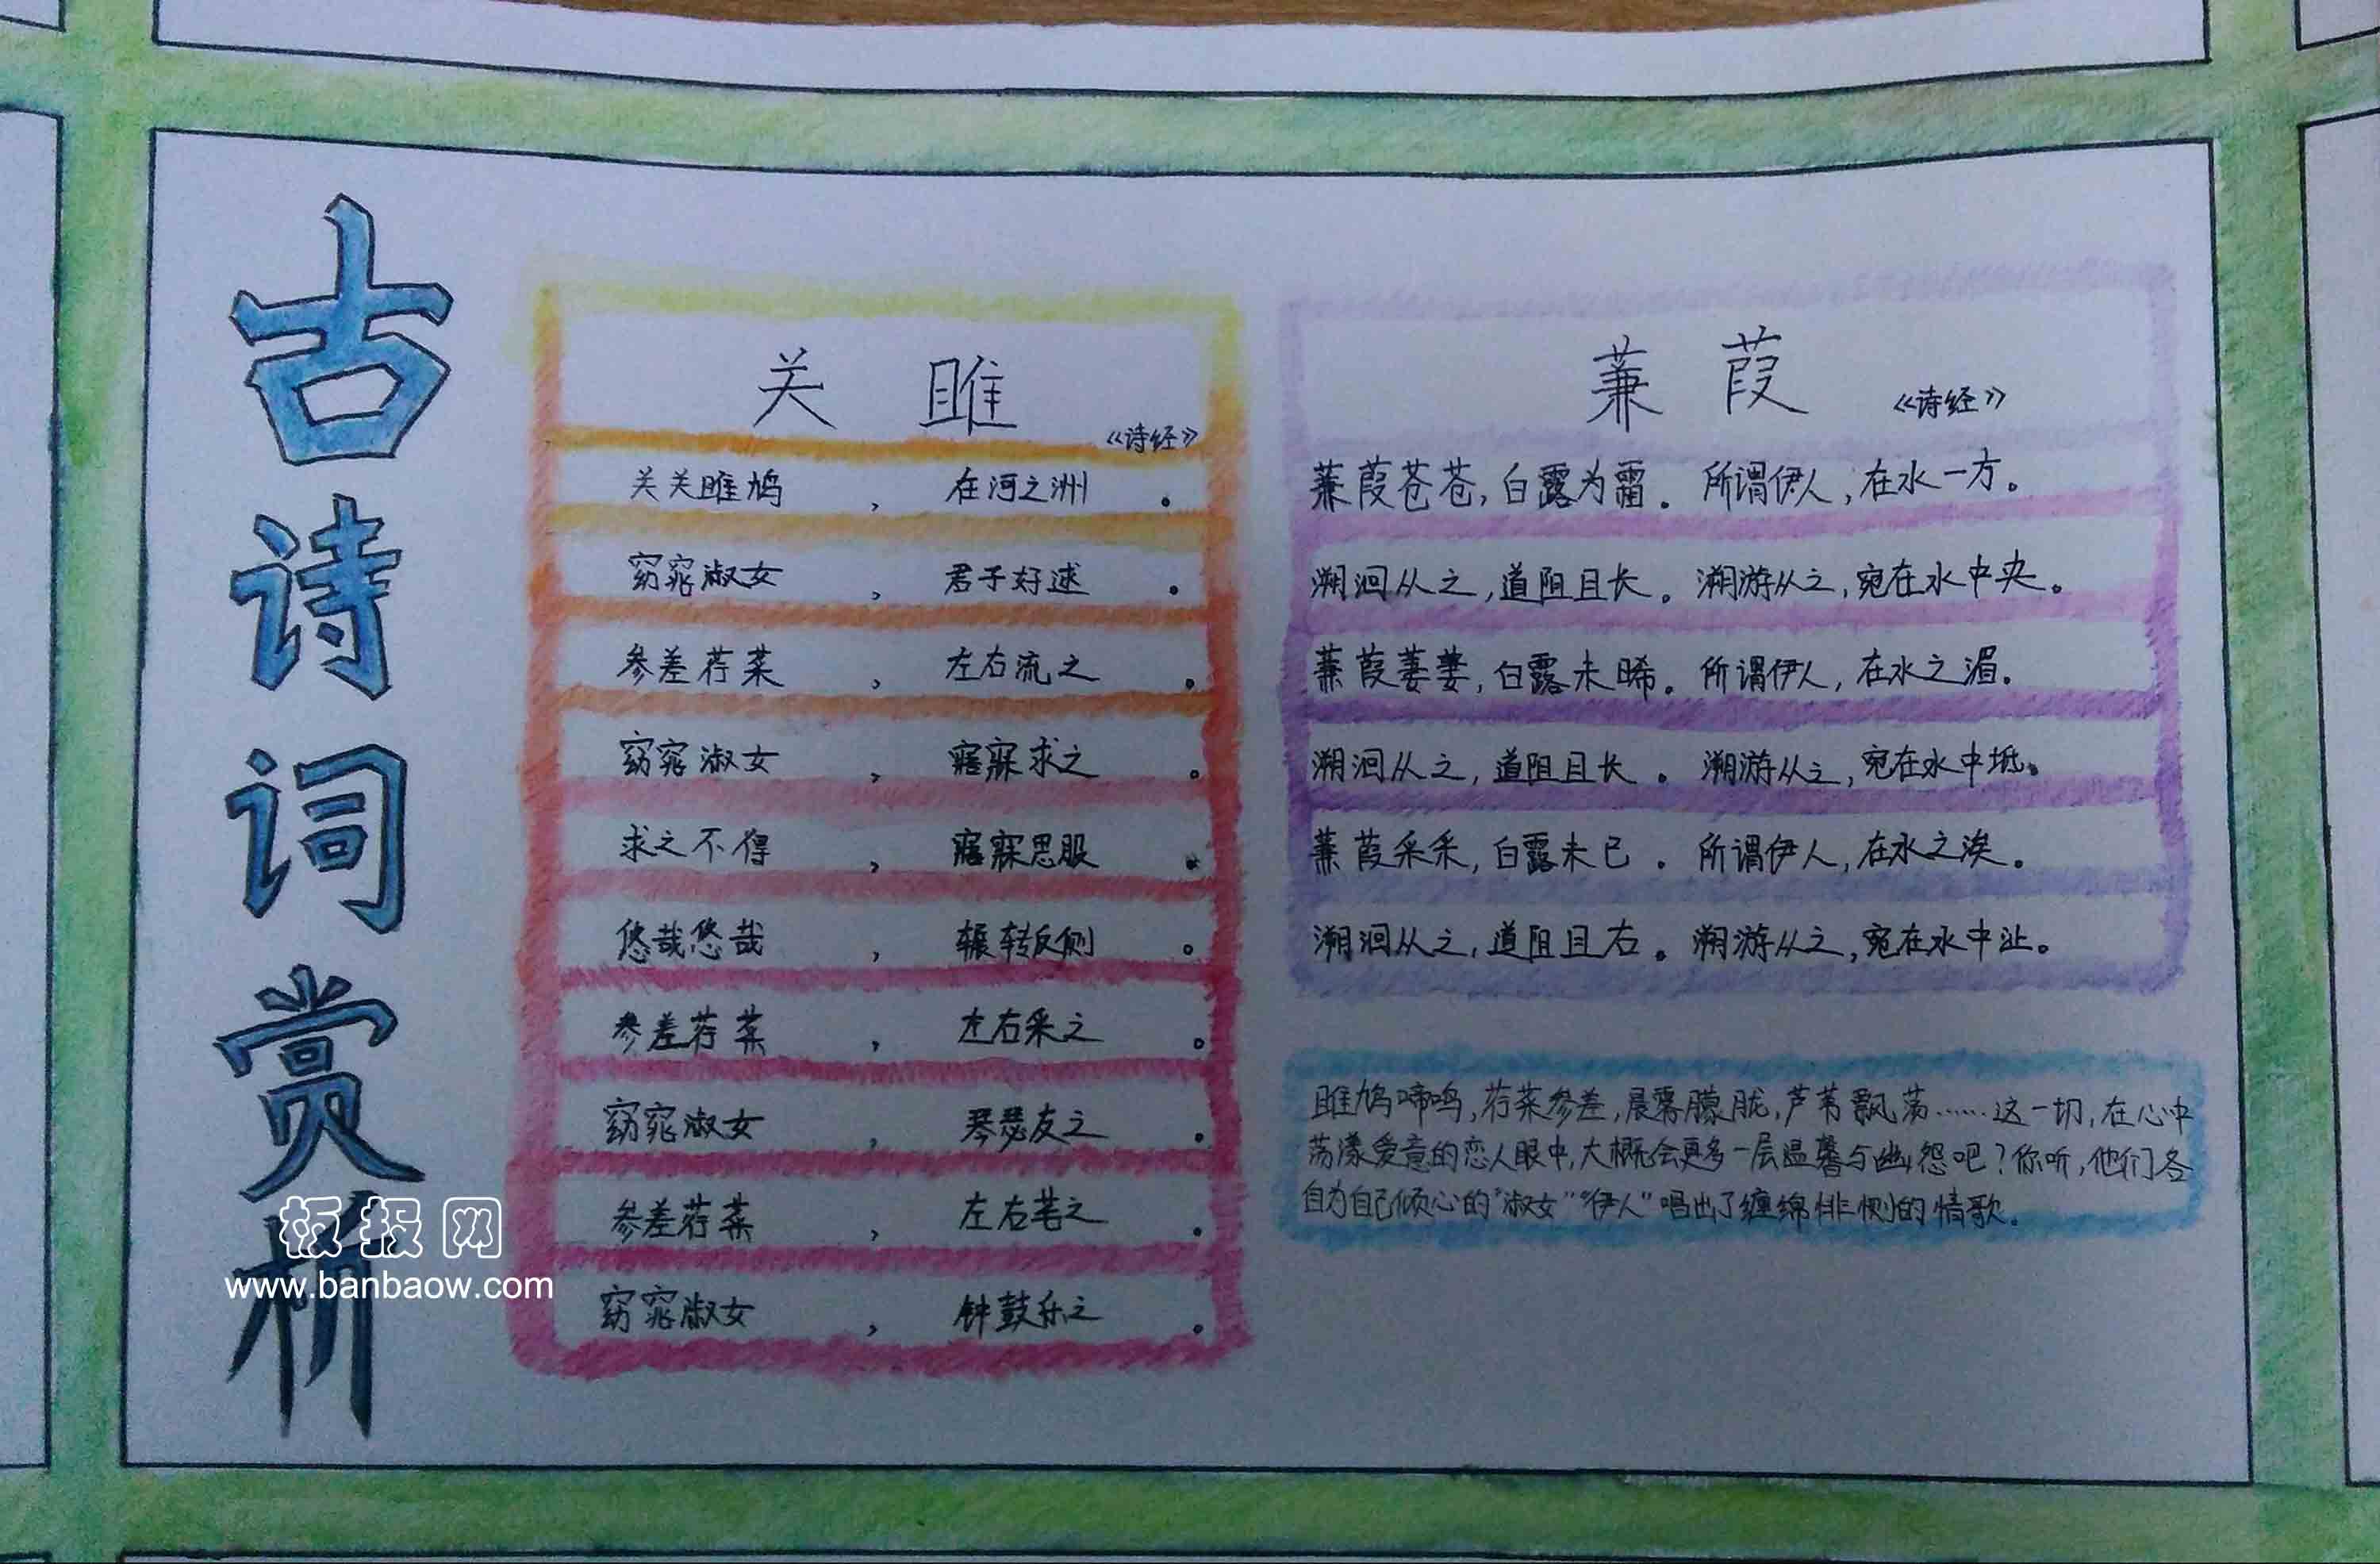 古诗词赏析
关雎
《诗经》
关关雎鸠，在河之洲。
窈窕淑女，君子好逑。
参差荇菜，左右流之。
窈窕淑女，寤寐求之。
求之不得，寤寐思服。
悠哉悠哉，辗转反侧。
参差荇菜，左右采之。
窈窕淑女，琴瑟友之。
参差荇菜，左右芼之。
窈窕淑女，钟鼓乐之。
蒹葭
《诗经》
蒹葭苍苍，白露为霜。所谓伊人，在水一方。
溯洄从之，道阻且长。溯游从之，宛在水中央。
蒹葭萋萋，白露未晞。所谓伊人，在水之湄。
溯洄从之，道阻且长。溯游从之，宛在水中坻。
蒹葭采采，白露未已。所谓伊人，在水之涘。
溯洄从之，道阻且右。溯游从之，宛在水中沚。
雎鸠啼鸣，荇菜参差，晨雾朦胧，芦苇飘荡……这一切，在心中
荡漾爱意的恋人眼中，大概会更多一层温馨与幽怨吧？你听，他们各
自为自己倾心的“淑女”“伊人”唱出了缠绵悱恻的情歌。
板报网
www.banbaow.com